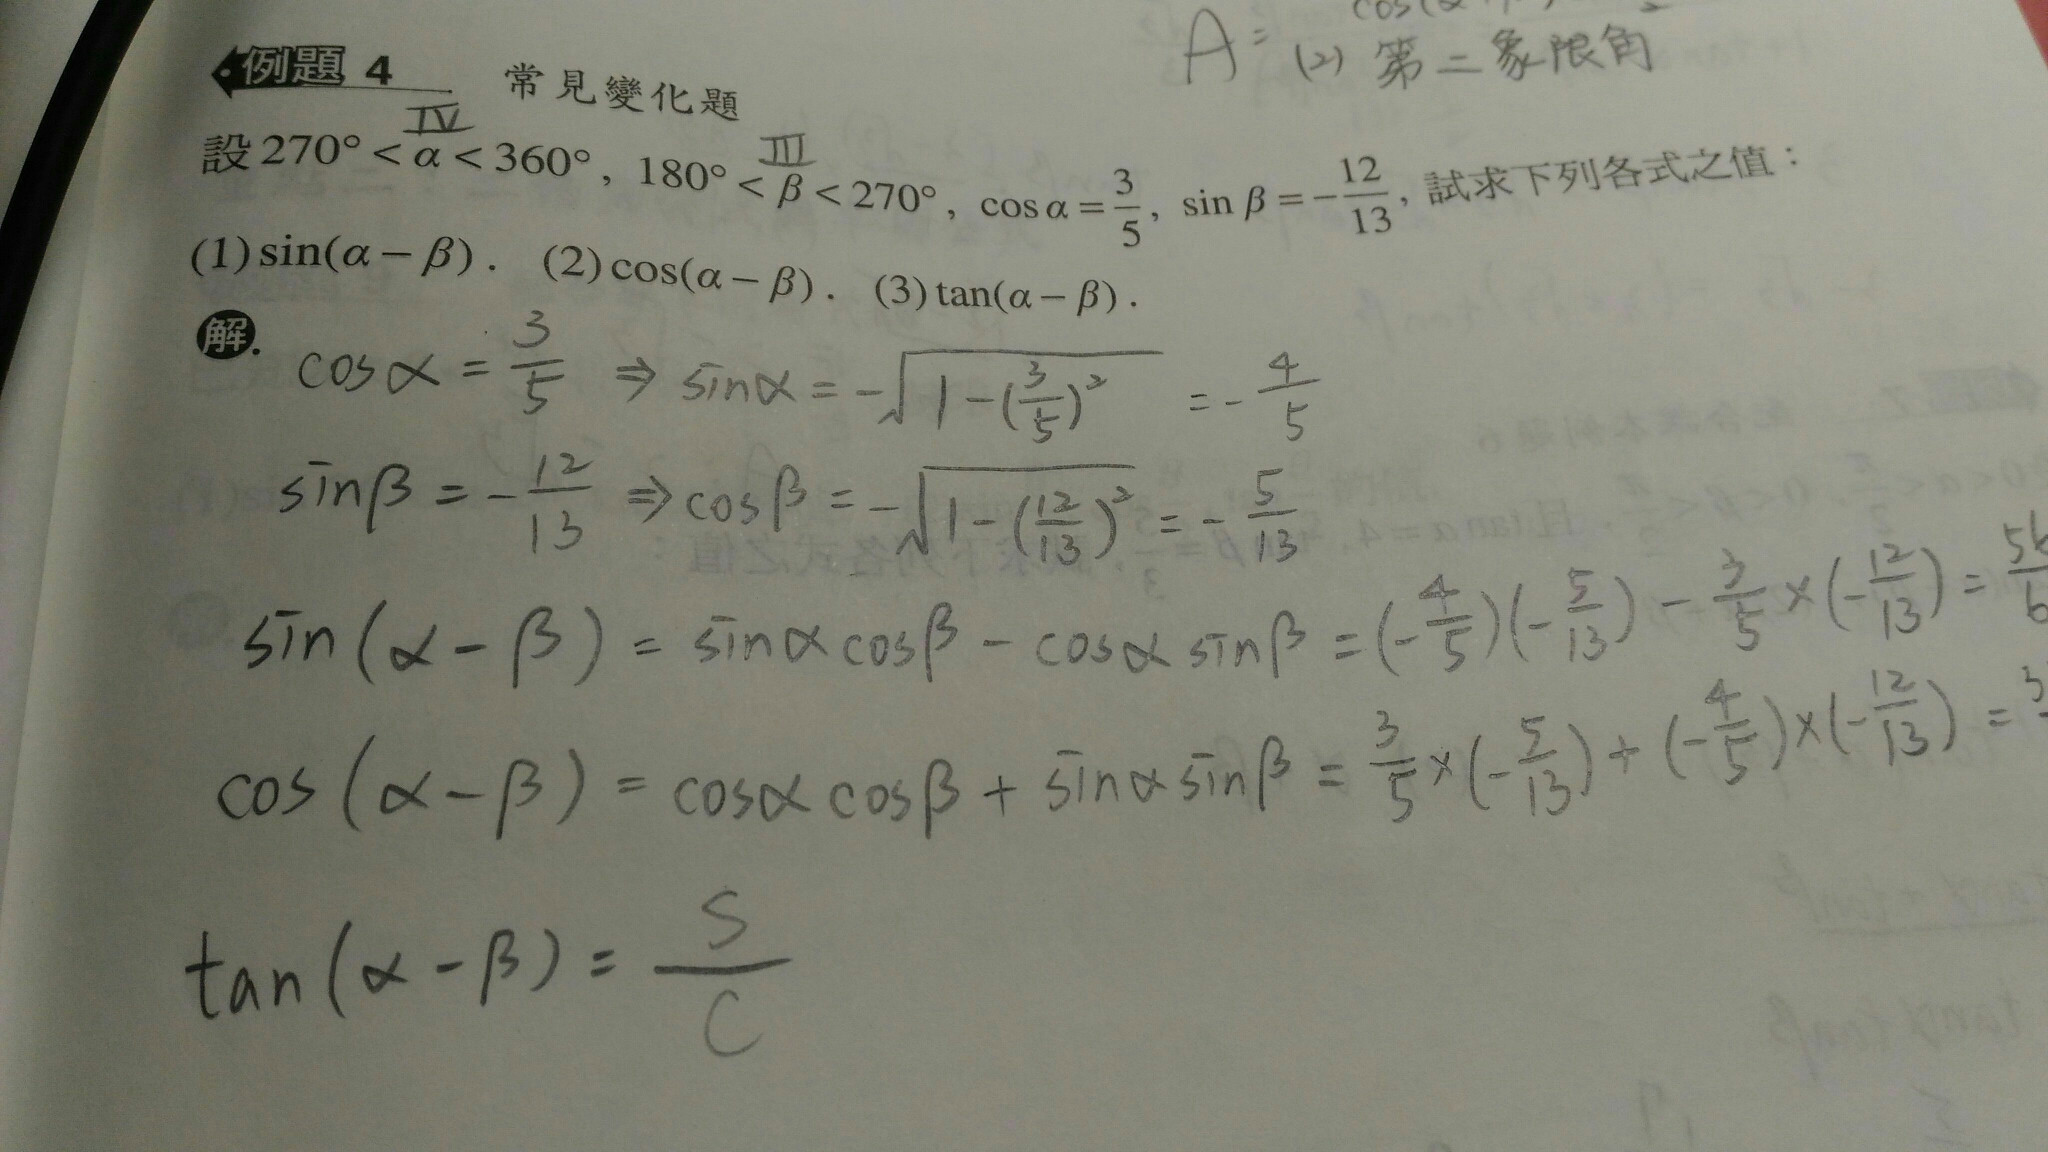 A = cos(α
(2) 第二象限角
例題 4 常見變化題
IV III
設 270° < α < 360°, 180° < β < 270°, cos α = 3/5, sin β = -12/13, 試求下列各式之值：
(1) sin(α - β). (2) cos(α - β). (3) tan(α - β).
解.
cosα = 3/5 ⇒ sinα = -√(1-(3/5)²) = -4/5
sinβ = -12/13 ⇒ cosβ = -√(1-(12/13)²) = -5/13
sin(α-β) = sinα cosβ - cosα sinβ = (-4/5)(-5/13) - 3/5×(-12/13) = 56/6
cos(α-β) = cosα cosβ + sinα sinβ = 3/5×(-5/13) + (-4/5)×(-12/13) = 3
tan(α-β) = S/C